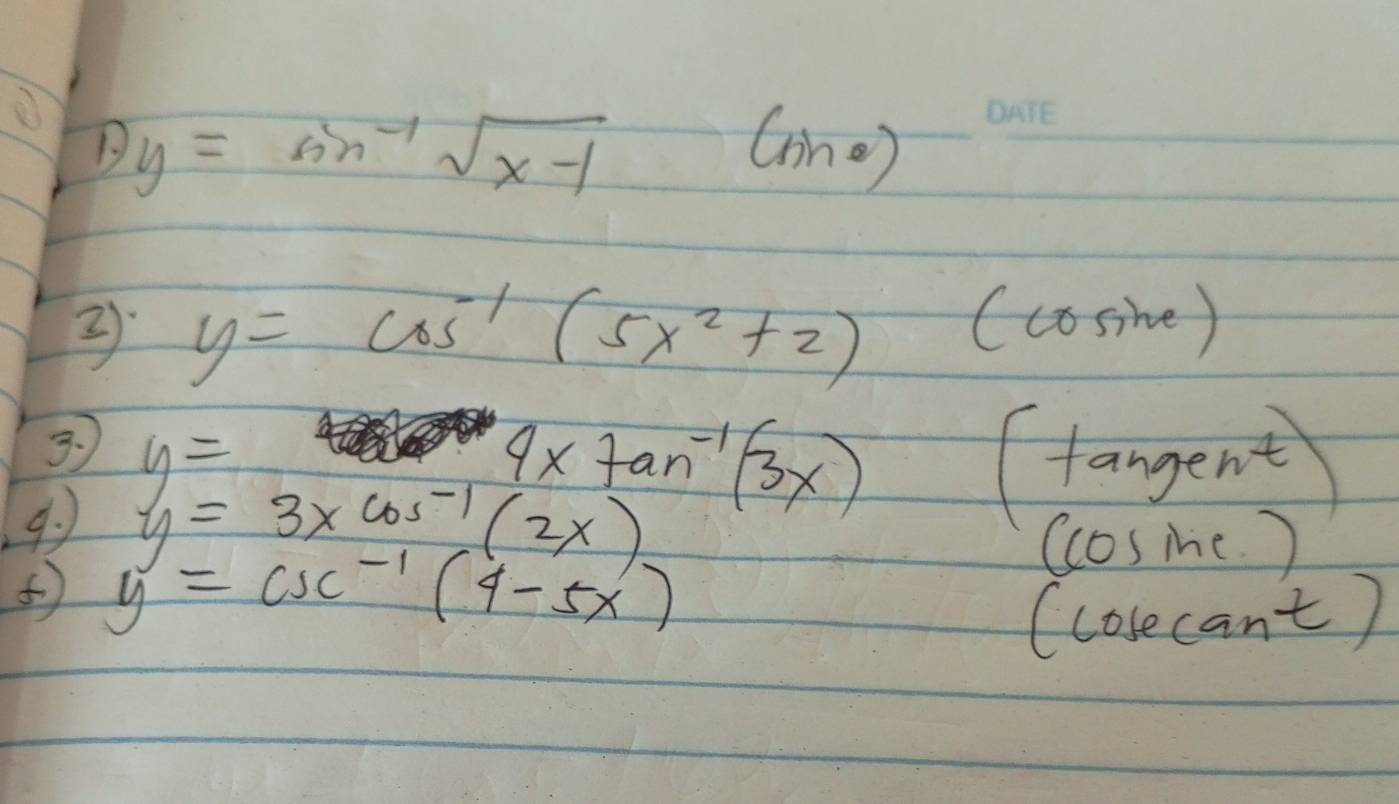 DATE
1.) y = sin⁻¹ √(x-1) (sine)
2). y = cos⁻¹ (5x² + 2) (cosine)
3.) y = 4x tan⁻¹ (3x) (tangent)
4.) y = 3x cos⁻¹ (2x) (cosine.)
5) y = csc⁻¹ (4 - 5x) (cosecant)